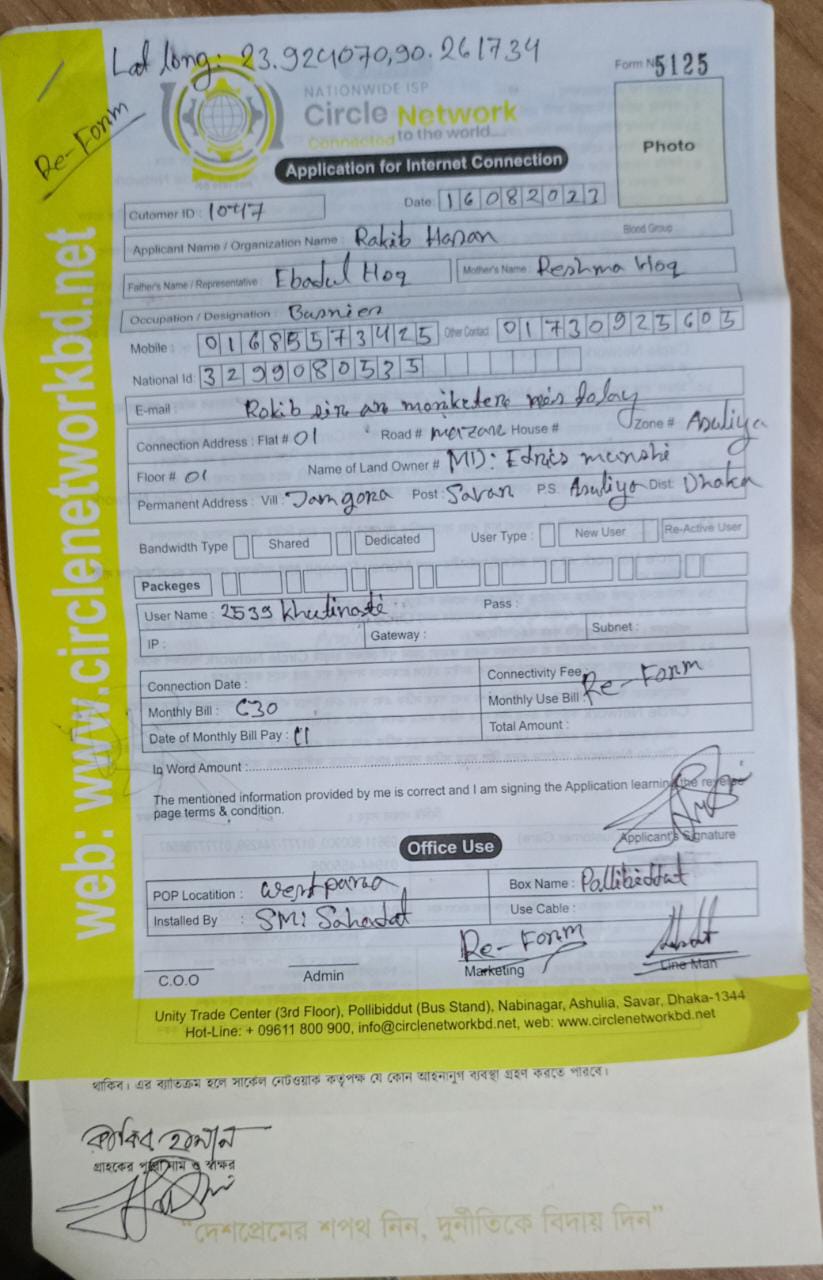 Lat long: 23.924070,90.261734
Form N 5125
Re-Form
NATIONWIDE ISP
Circle Network
Connected to the world...
Photo
Application for Internet Connection
Cutomer ID : 1047 Date 16082023
Applicant Name / Organization Name : Rakib Hasan Blood Group
Father's Name / Representative : Ebadul Hoq Mother's Name : Reshma Hoq
Occupation / Designation :
Mobile : 01685573425 Other Contact 01730925605
National Id: 3299080535
E-mail :
Connection Address : Flat # 01 Road # House # Zone # Asuliya
Floor # 01 Name of Land Owner # MD: Edris munshi
Permanent Address : Vill : Jamgora Post : Savar P.S. Asuliya Dist: Dhaka
Bandwidth Type Shared Dedicated User Type : New User Re-Active User
Packeges
User Name : 2539 Pass :
IP : Gateway : Subnet :
Connection Date : Connectivity Fee :
Monthly Bill : Monthly Use Bill : Re-Form
Date of Monthly Bill Pay : Total Amount :
In Word Amount :
The mentioned information provided by me is correct and I am signing the Application learning the reverse
page terms & condition.
Applicant's Signature
Office Use
POP Locatition : westpara Box Name : Pollibiddut
Installed By : SM: Sahadat Use Cable :
Re-Form
C.O.O Admin Marketing Line Man
Unity Trade Center (3rd Floor), Pollibiddut (Bus Stand), Nabinagar, Ashulia, Savar, Dhaka-1344
Hot-Line: + 09611 800 900, info@circlenetworkbd.net, web: www.circlenetworkbd.net
web: www.circlenetworkbd.net
থাকিব। এর ব্যতিক্রম হলে সার্কেল নেটওয়ার্ক কর্তৃপক্ষ যে কোন আইনানুগ ব্যবস্থা গ্রহণ করতে পারবে।
রাকিব হাসান
গ্রাহকের পুরো নাম ও স্বাক্ষর
"দেশপ্রেমের শপথ নিন, দুর্নীতিকে বিদায় দিন"